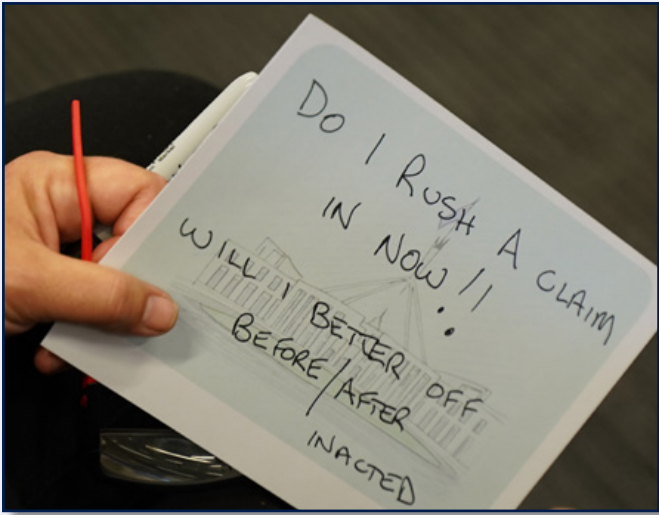 DO I RUSH A CLAIM
IN NOW!!
WILL I BETTER OFF
BEFORE/AFTER
INACTED